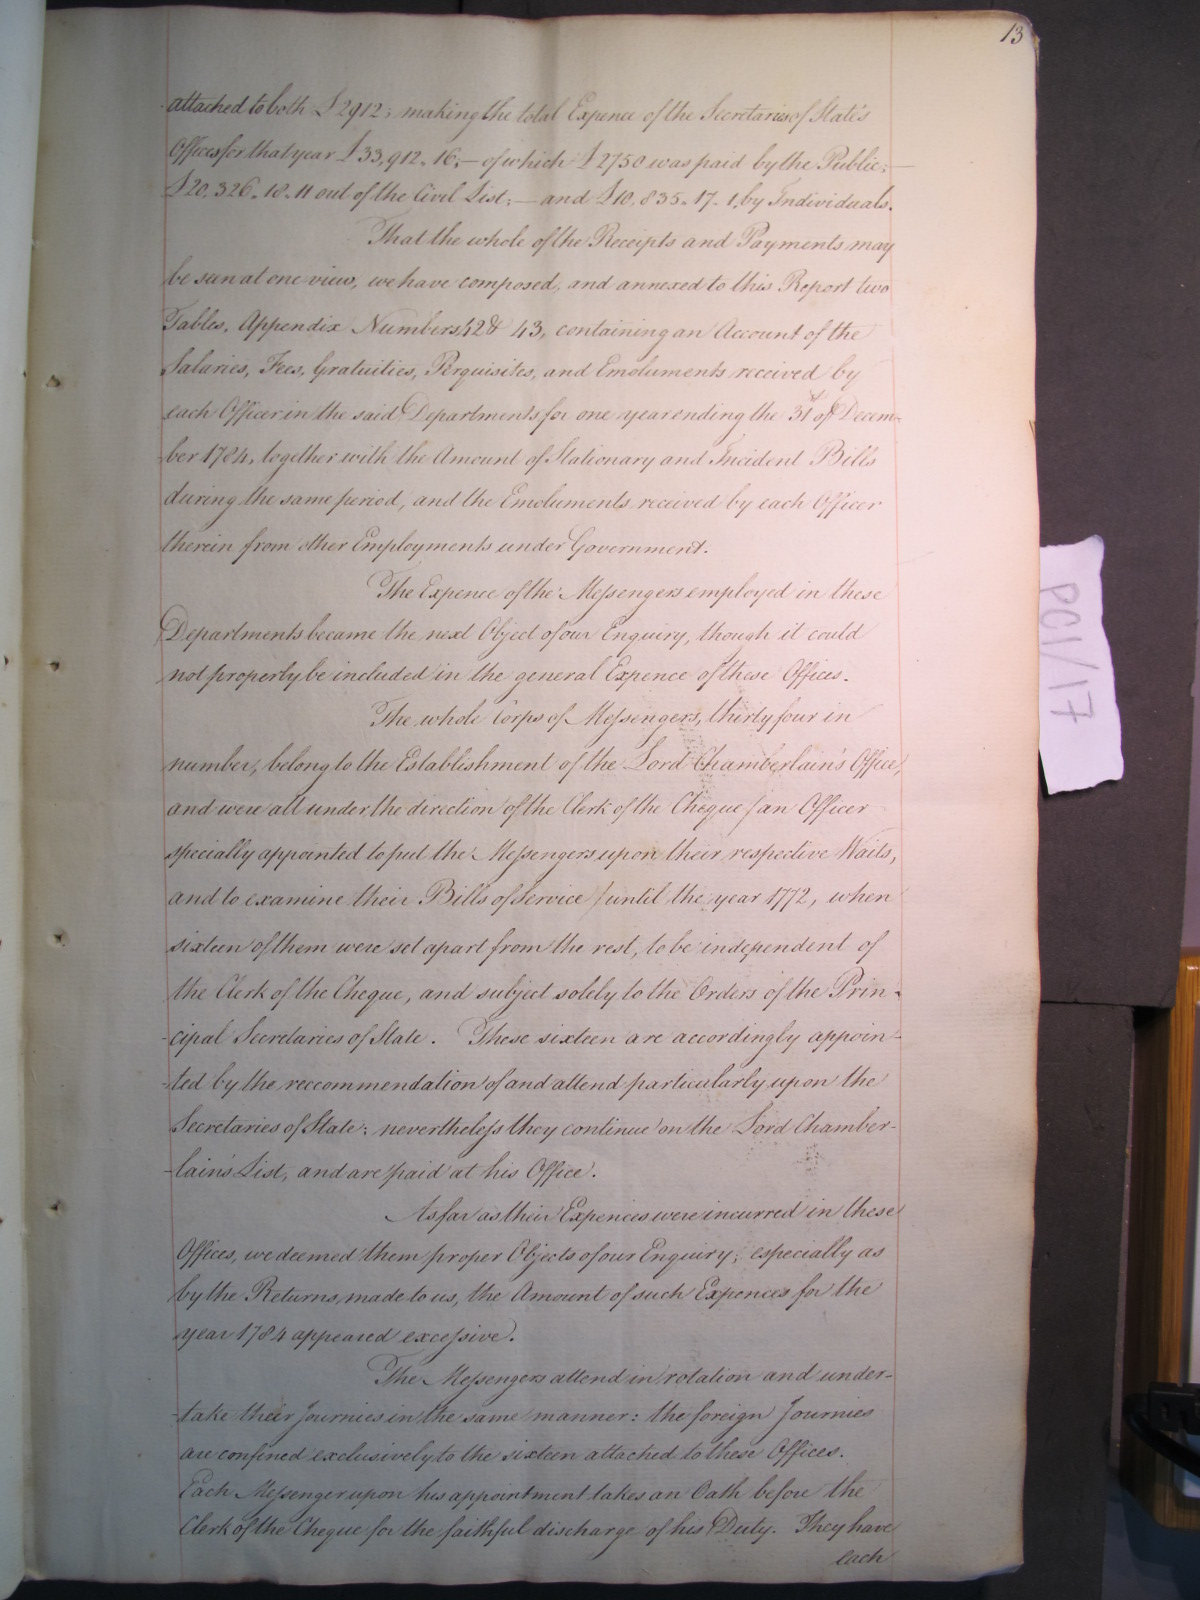 13
attached to both £2912; making the total Expence of the Secretaries of State's
Offices for that year £33,912.16.— of which £2750 was paid by the Public;—
£20,326.18.11 out of the Civil List;— and £10,835.17.1, by Individuals.
That the whole of the Receipts and Payments may
be seen at one view, we have composed, and annexed to this Report two
Tables, Appendix Numbers 42 & 43, containing an Account of the
Salaries, Fees, Gratuities, Perquisites, and Emoluments received by
each Officer in the said Departments for one year ending the 31st of Decem-
-ber 1784, together with the Amount of Stationary and Incident Bills
during the same period, and the Emoluments received by each Officer
therein from other Employments under Government.
The Expence of the Messengers employed in these
Departments became the next Object of our Enquiry, though it could
not properly be included in the general Expence of these Offices.
The whole Corps of Messengers, thirty four in
number, belong to the Establishment of the Lord Chamberlain's Office,
and were all under the direction of the Clerk of the Cheque /an Officer
specially appointed to put the Messengers upon their respective Waits,
and to examine their Bills of Service / until the year 1772, when
sixteen of them were set apart from the rest, to be independent of
the Clerk of the Cheque, and subject solely to the Orders of the Prin-
-cipal Secretaries of State. These sixteen are accordingly appoin-
-ted by the reccommendation of and attend particularly upon the
Secretaries of State: nevertheless they continue on the Lord Chamber-
-lain's List, and are paid at his Office.
As far as their Expences were incurred in these
Offices, we deemed them proper Objects of our Enquiry; especially as
by the Returns, made to us, the Amount of such Expences for the
year 1784 appeared excessive.
The Messengers attend in rotation and under-
-take their Journies in the same manner: the foreign Journies
are confined exclusively to the sixteen attached to these Offices.
Each Messenger upon his appointment takes an Oath before the
Clerk of the Cheque for the faithful discharge of his Duty. They have
each
PC1/17